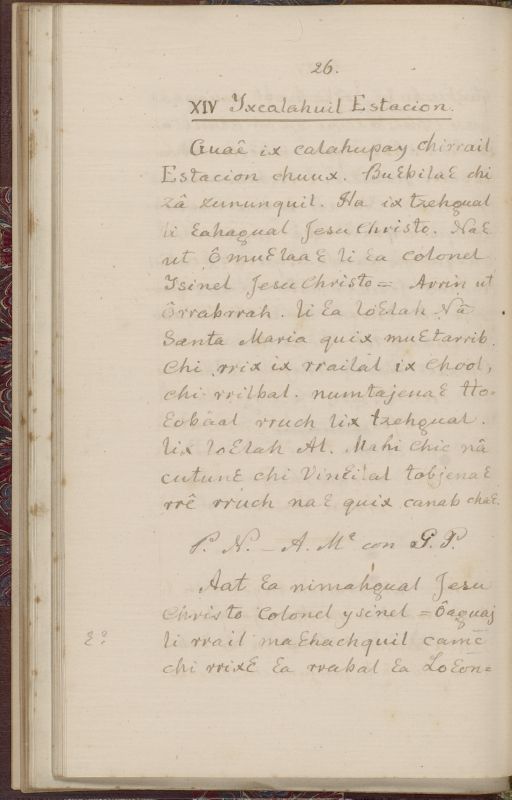 26.
XIV Yxcalahuil Estacion.
Guaê ix calahupay chirrail
Estacion chuux. BuƐbilaƐ chi
zâ zununquil. Ha ix tzehgual
li Ɛahagual Jesu Christo. NaƐ
ut ÔmuƐlaaƐ li Ɛa colonel
Ysinel Jesu Christo = Avrin ut
Ôrrabrrah. li Ɛa loƐlah Nâ
Santa Maria quix muƐtarrib.
Chi rrix ix rrailal ix Chool,
chi rrilbal. numtajenaƐ tto-
Ɛobâal rruch lix tzehgual.
lix loƐlah Al. Mahi chic nâ
cutunƐ chi VinƐilal tobjenaƐ
rrê rruch naƐ quix canab chaƐ.
P. N. – A. Mᵉ con G. P.
Aat Ɛa nimahgual Jesu
Christo Colonel ysinel = Ôaguaj
2º li rrail maƐhachquil camîc
chi rrixƐ Ɛa rrabal Ɛa LoƐon=